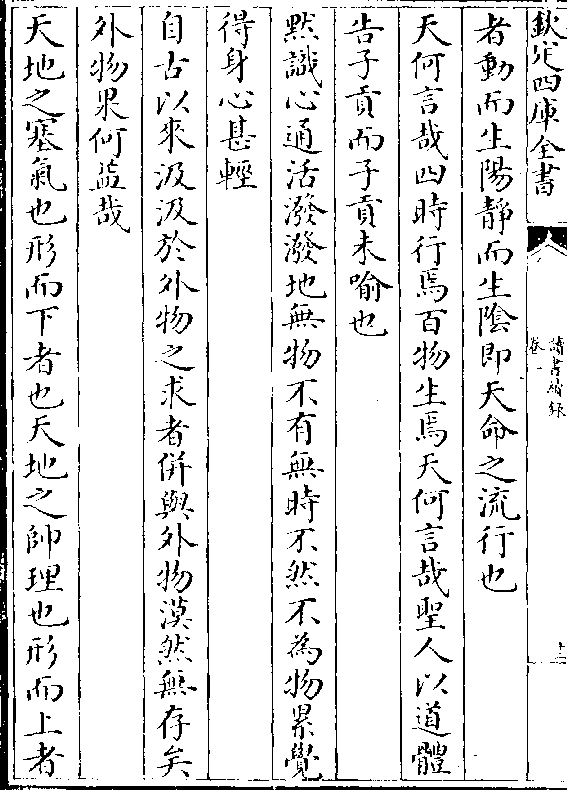 欽定四庫全書
讀書續錄
卷一
十二
者動而生陽靜而生陰即天命之流行也
天何言哉四時行焉百物生焉天何言哉聖人以道體
告子貢而子貢未喻也
黙識心通活潑潑地無物不有無時不然不為物累覺
得身心甚輕
自古以來汲汲於外物之求者併與外物漠然無存矣
外物果何益哉
天地之塞氣也形而下者也天地之帥理也形而上者